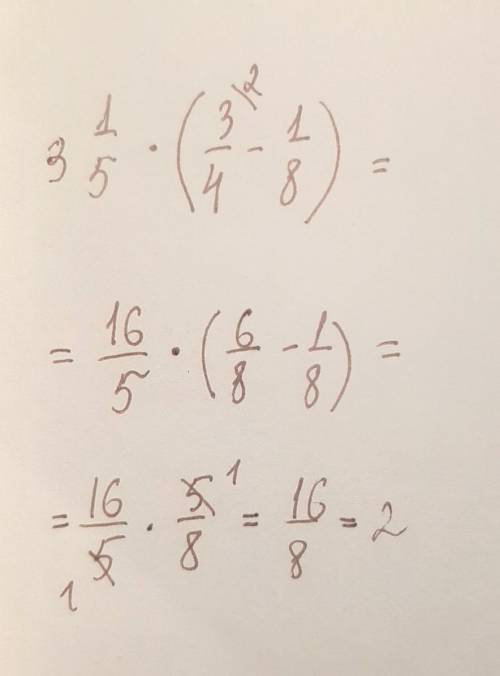 3 1/5 · (3/4 \2 - 1/8) =
= 16/5 · (6/8 - 1/8) =
= 16/5 1 · 5/8 1 = 16/8 = 2